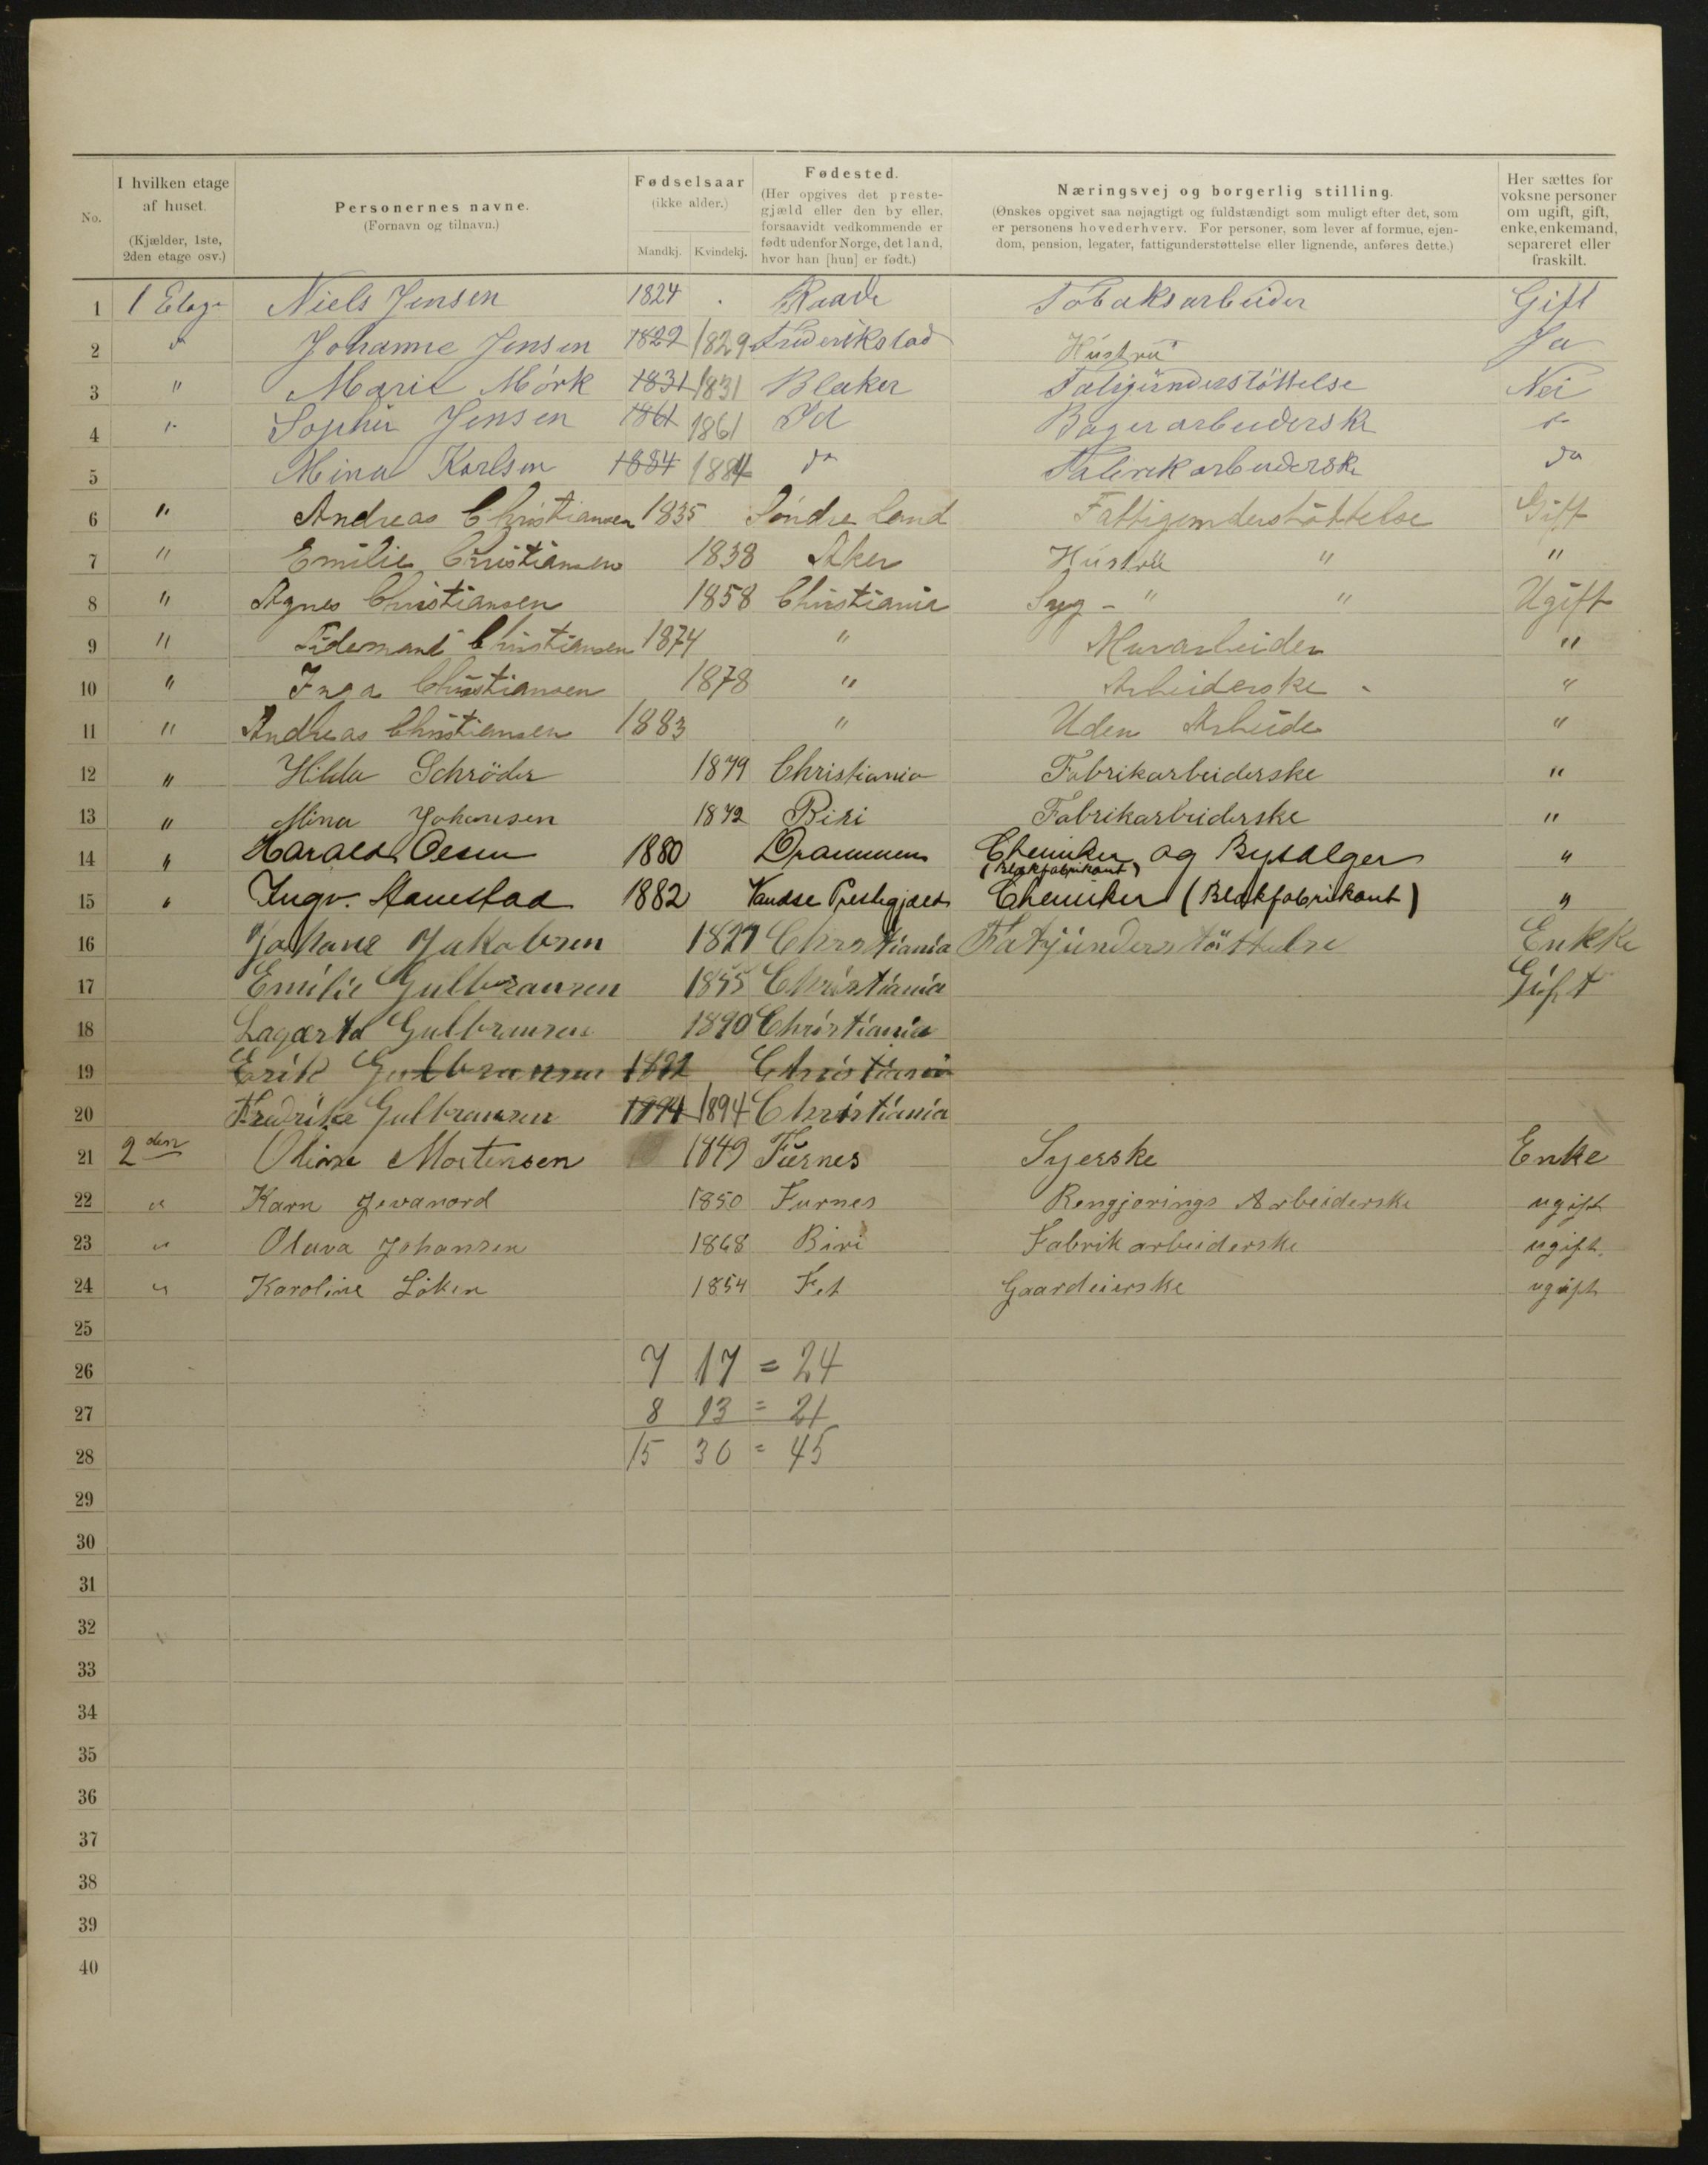 No. | I hvilken etage af huset. (Kjælder, 1ste, 2den etage osv.) | Personernes navne. (Fornavn og tilnavn.) | Fødselsaar (ikke alder.) Mandkj. Kvindekj. | Fødested. (Her opgives det prestegjæld eller den by eller, forsaavidt vedkommende er født udenfor Norge, det land, hvor han [hun] er født.) | Næringsvej og borgerlig stilling. (Ønskes opgivet saa nøjagtigt og fuldstændigt som muligt efter det, som er personens hovederhverv. For personer, som lever af formue, ejendom, pension, legater, fattigunderstøttelse eller lignende, anføres dette.) | Her sættes for voksne personer om ugift, gift, enke, enkemand, separeret eller fraskilt.
1 1 Etage Niels Jensen 1824 Raade Tobaksarbeider Gift
2 do Johanne Jensen 1829 1829 Frederikstad Hustru Ja
3 " Marie Mörk 1831 1831 Blaker Fatigünderstöttelse Nei
4 " Sophie Jensen 1861 1861 Id Bagerarbeiderske
5 Mina Karlsen 1884 1884 do Fabrikarbeiderske do
6 " Andreas Christiansen 1835 Söndre Land Fattigunderstöttelse Gift
7 " Emilie Christiansen 1838 Aker Hustru " "
8 " Agnes Christiansen 1858 Christiania Syg - " " Ugift
9 " Tidemand Christiansen 1874 " Murarbeider "
10 " Inga Christiansen 1878 " Arbeiderske "
11 " Andreas Christiansen 1883 " Uden Arbeide "
12 " Hilda Schröder 1879 Christiania Fabrikarbeiderske "
13 " Mina Johansen 1872 Biri Fabrikarbeiderske "
14 " Harald Olsen 1880 Drammen Chemiker og Bysælger "
(Blækfabrikant)
15 " Ingv. 1882 Vandse Prestegjæld Chemiker (Blækfabrikant) "
16 Johane Jakobsen 1827 Christiania Fatjünderstöttelse Enkke
17 Emilie Gulbransen 1855 Christiania Gift
18 Lagærta Gulbransen 1890 Christiania
19 Erik Gulbransen 1892 Christiania
20 Fredrike Gulbransen 1894 1894 Christiania
21 2den Oline Mortensen 1849 Furnes Syerske Enke
22 " Karn Jevanord 1850 Furnes Rengjørings Arbeiderske ugift
23 " Olava Johansen 1868 Biri Fabrik arbeiderske ugift.
24 " Karoline Löken 1854 Fet Gaardeierske ugift
25
26 7 17 = 24
27 8 13 = 21
28 15 30 = 45
29
30
31
32
33
34
35
36
37
38
39
40